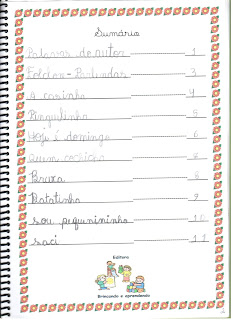 Sumário
Palavras do autor 1
Folclore - Parlendas 3
A casinha 4
Pingulinha 5
Hoje é domingo 6
Quem cochicha 8
Bruxa 8
Batatinha 9
sou pequenininha 10
saci 11
Editora
Brincando e aprendendo